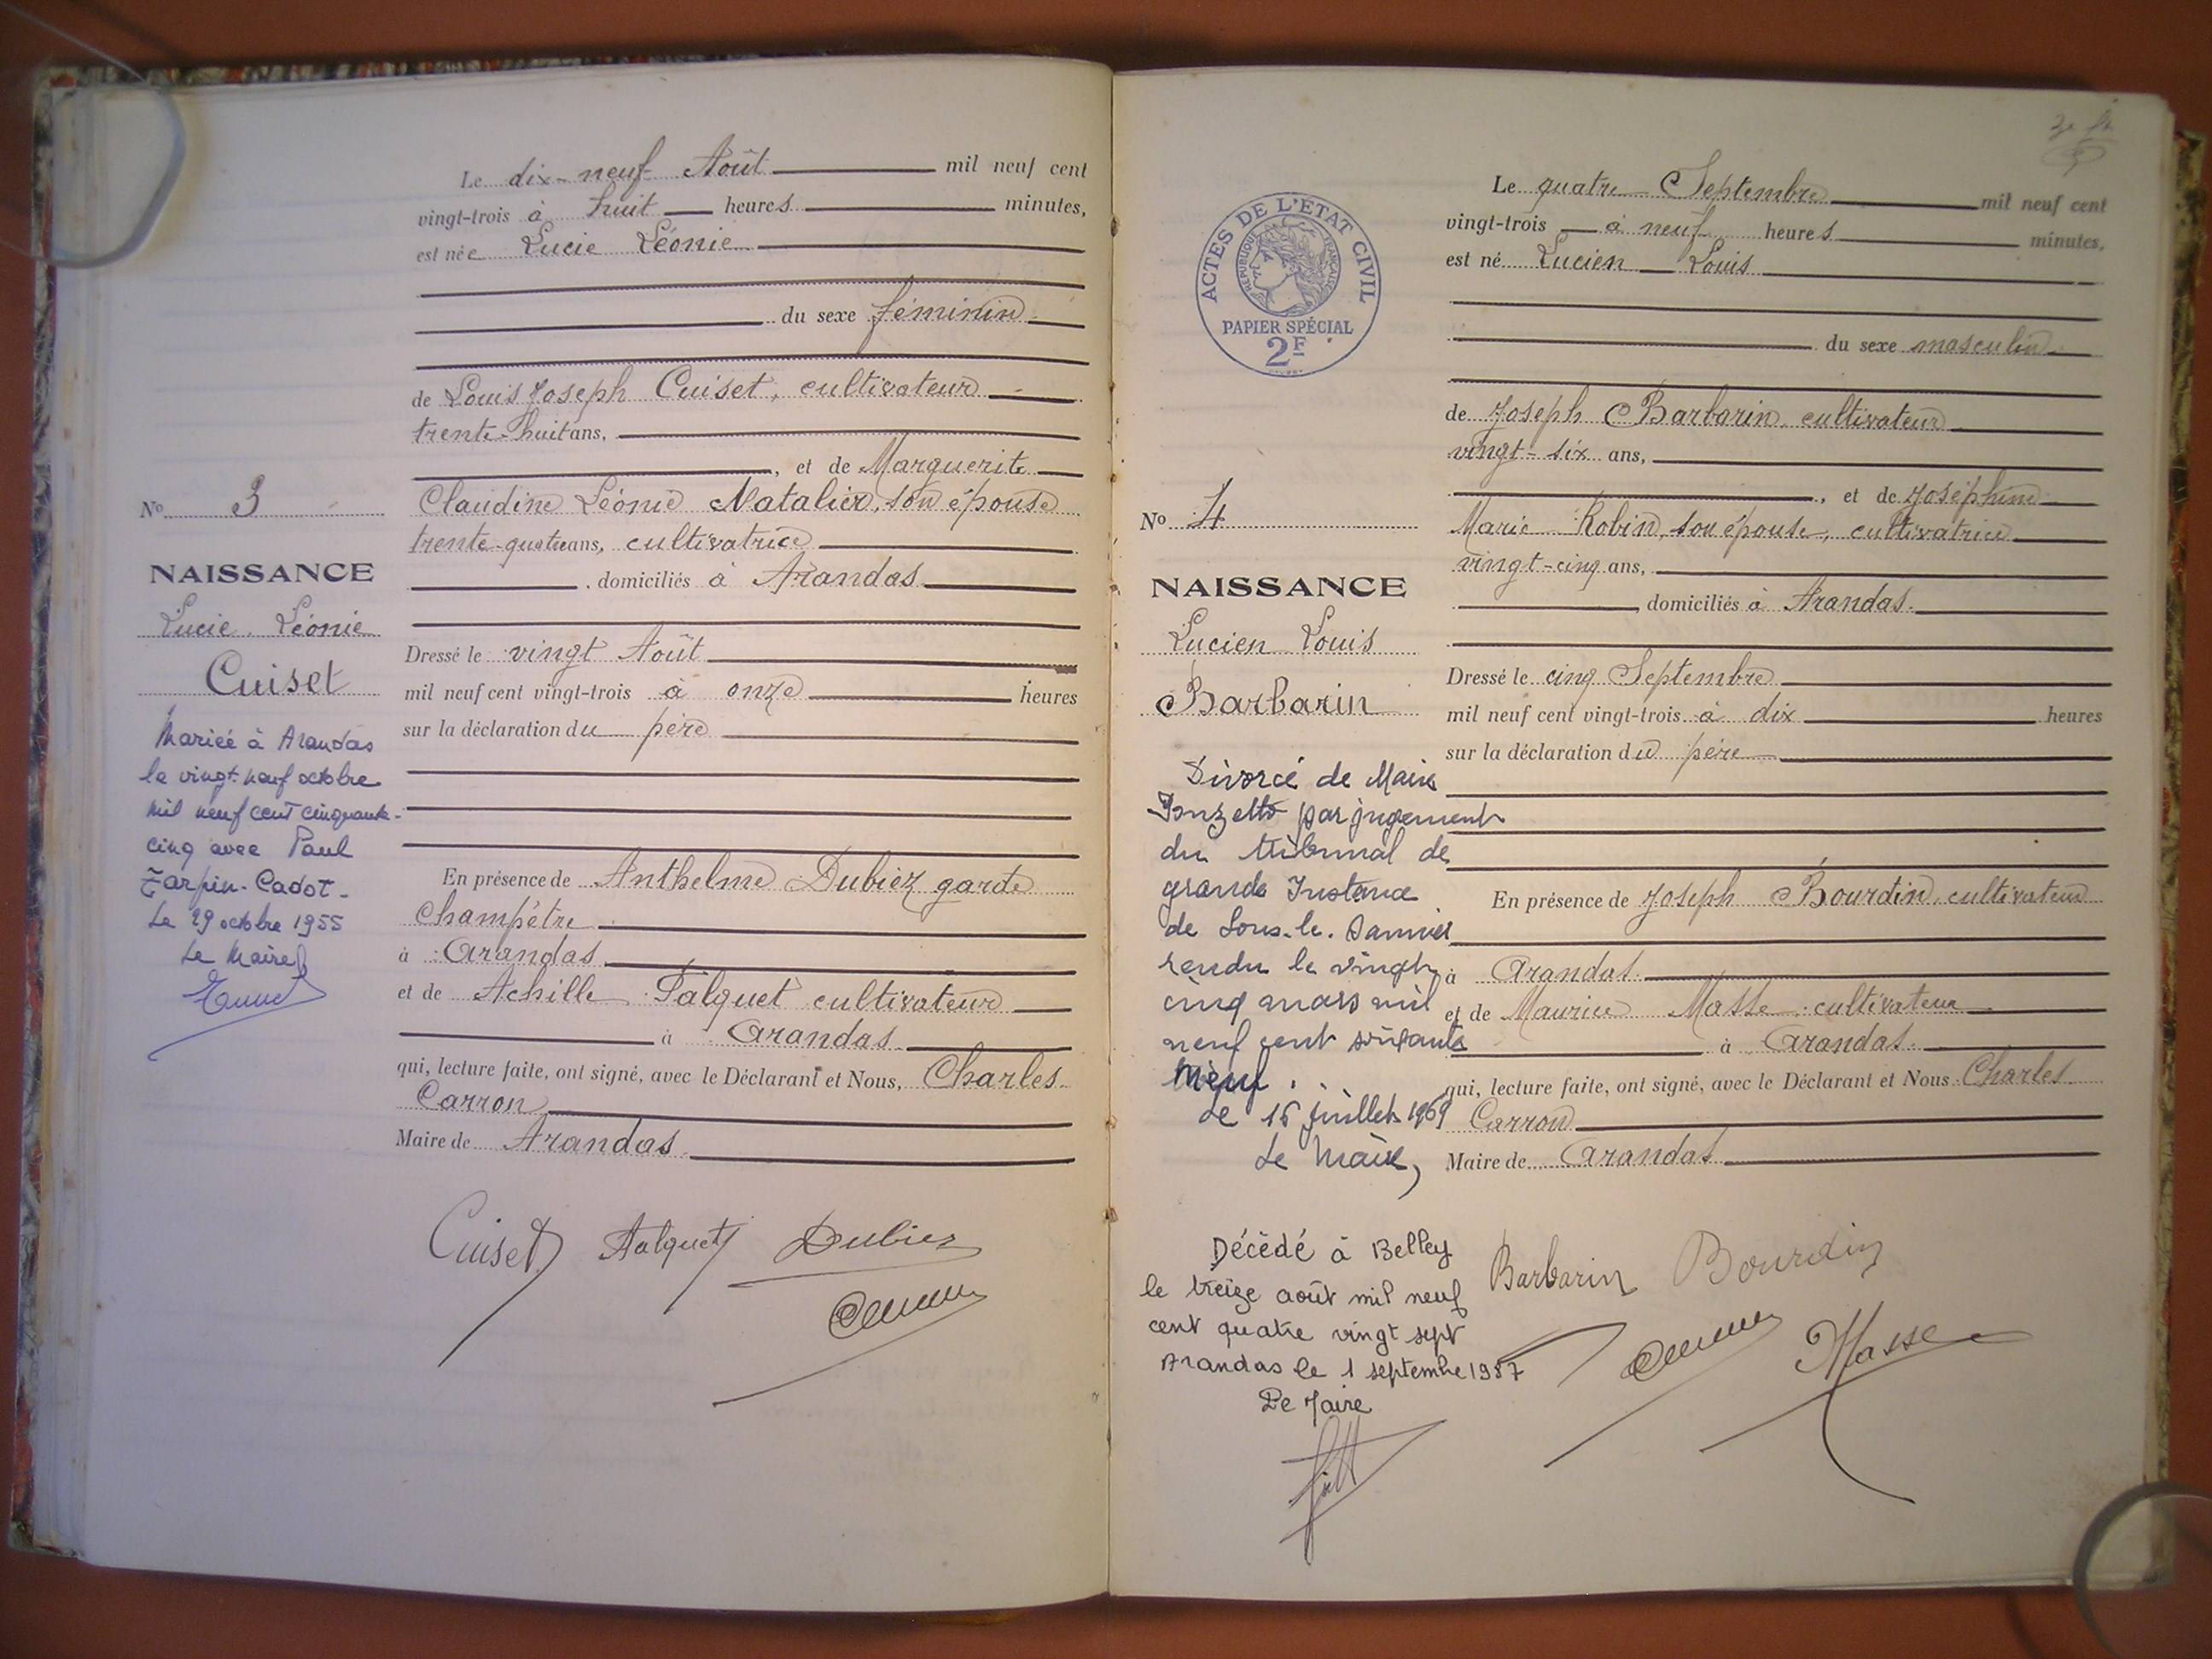 Le dix-neuf Août mil neuf cent
vingt-trois à huit heures minutes,
est née Lucie Léonie
du sexe féminin
de Louis Joseph Cuiset, cultivateur
trente-huit ans,
, et de Marguerite
Claudine Léonie Natalier, son épouse
trente-quatre ans, cultivatrice
, domiciliés à Arandas
Dressé le vingt Août
mil neuf cent vingt-trois à onze heures
sur la déclaration du père
En présence de Anthelme Dubiez garde
Champêtre
à Arandas
et de Achille Falquet cultivateur
à Arandas
qui, lecture faite, ont signé, avec le Déclarant et Nous, Charles
Carron
Maire de Arandas
Cuiset Falquet Dubiez
No 3
NAISSANCE
Lucie Léonie
Cuiset
Mariée à Arandas
le vingt-neuf octobre
mil neuf cent cinquante-
cinq avec Paul
Zarpin-Cadot-
Le 29 octobre 1955
Le Maire
ACTES DE L'ETAT CIVIL
REPUBLIQUE FRANÇAISE
PAPIER SPÉCIAL
2F
Le quatre Septembre mil neuf cent
vingt-trois à neuf heures minutes,
est né Lucien Louis
du sexe masculin
de Joseph Barbarin, cultivateur
vingt-six ans,
, et de Joséphine
Marie Robin, son épouse, cultivatrice
vingt-cinq ans,
, domiciliés à Arandas.
Dressé le cinq Septembre
mil neuf cent vingt-trois à dix heures
sur la déclaration du père
En présence de Joseph Bourdin, cultivateur
à Arandas
et de Maurice Masse, cultivateur
à Arandas.
qui, lecture faite, ont signé, avec le Déclarant et Nous Charles
Carron
Maire de Arandas
Barbarin Bourdin
Masse
No 4
NAISSANCE
Lucien Louis
Barbarin
Divorcé de Marie
par jugement
du tribunal de
grande Instance
de Lons-le-Saunier
rendu le vingt
cinq mars mil
neuf cent soixante
neuf.
Le 16 juillet 1969
Le Maire,
Décédé à Belley
le treize août mil neuf
cent quatre vingt sept
Arandas le 1 septembre 1987
Le Maire